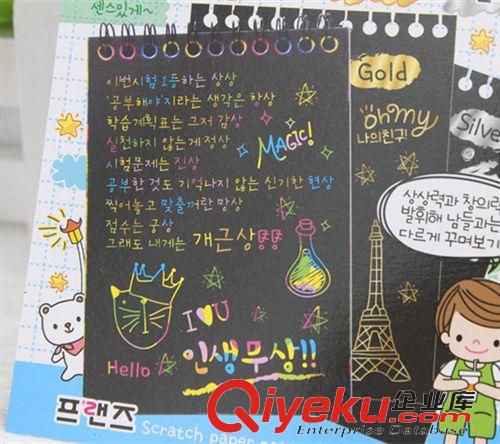 센스있게~
이번시험 1등하는 상상
'공부해야'지라는 생각은 항상
학습계획표는 그저 감상
실천하지 않는게 정상
시험문제는 진상
공부한 것도 기억나지 않는 신기한 현상
찍어놓고 맞출꺼란 망상
점수는 궁상
그래도 내게는 개근상
MAGIC!
I ♥ U
Hello
인생무상!!
Gold
oh my
나의친구!
Silve
상상력과 창의력
발휘해 남들과는
다르게 꾸며보기
프랜즈
Scratch paper
Qiyeku.com
企业库
Enterprise Database